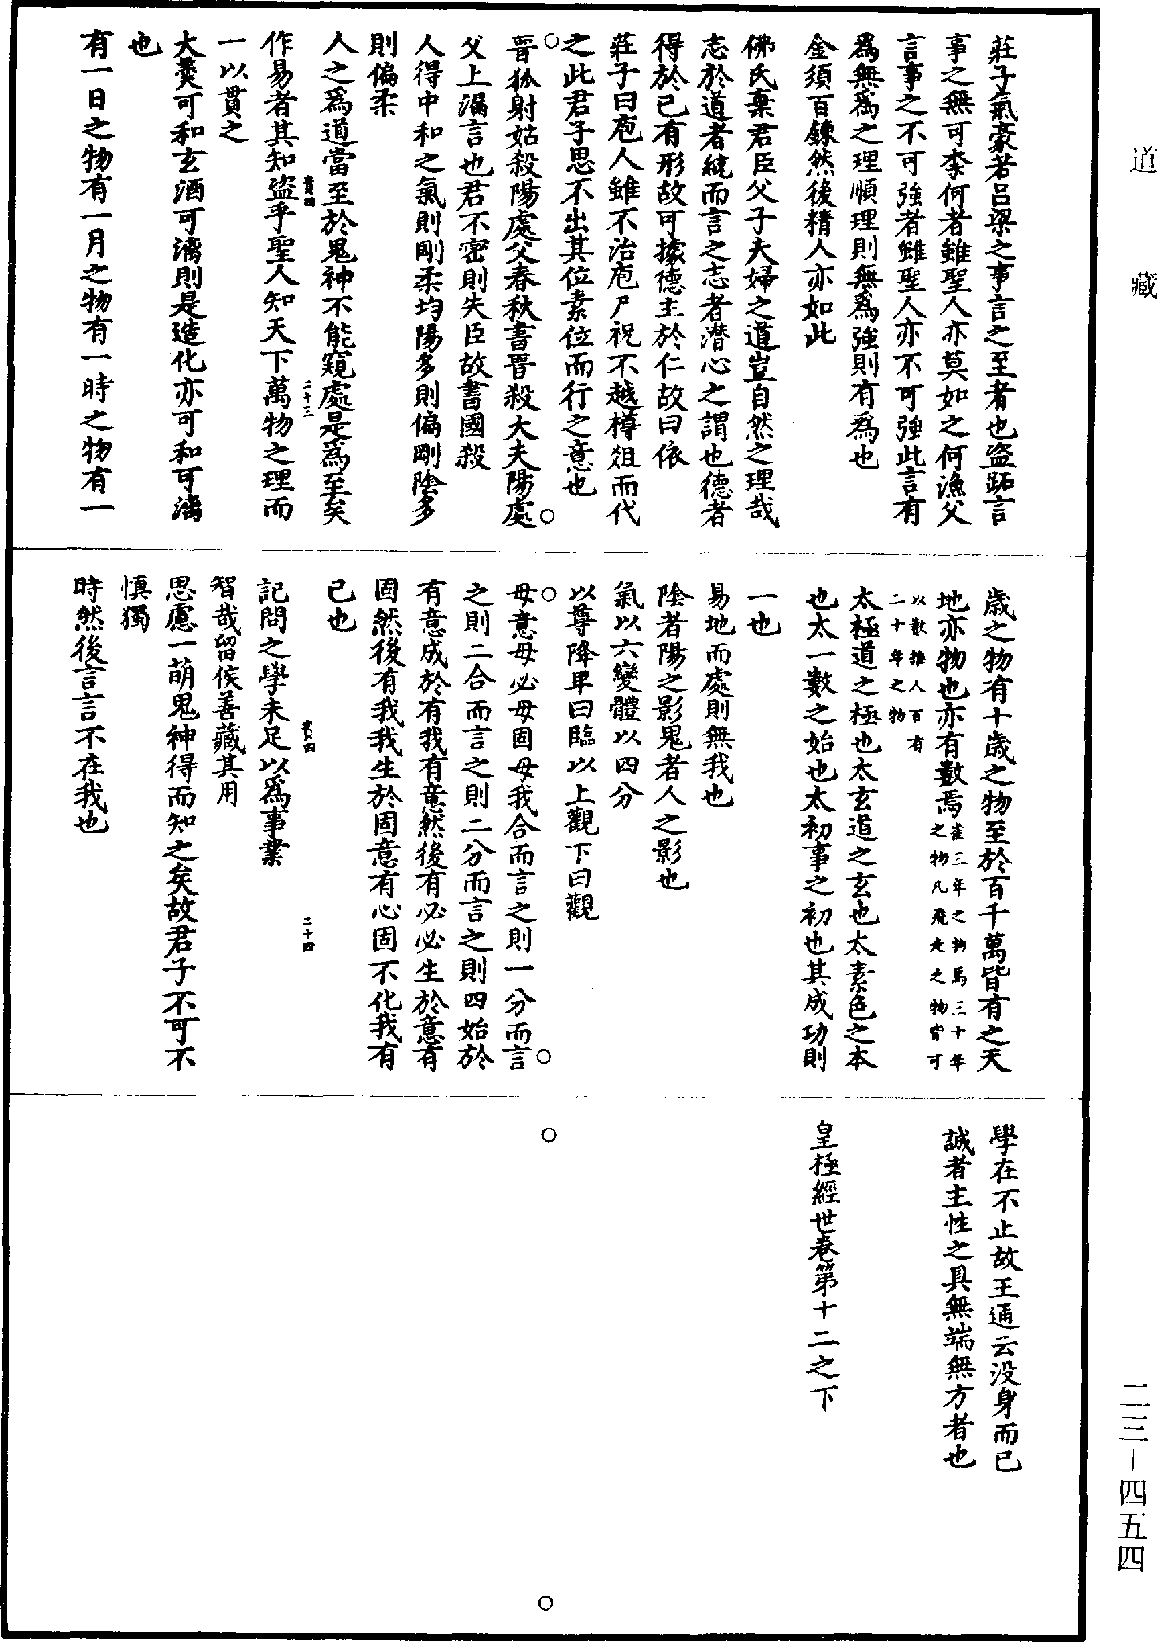 道藏
莊子氣豪若呂梁之事言之至者也盜跖言
事之無可柰何者雖聖人亦莫如之何漁父
言事之不可強者雖聖人亦不可強此言有
為無為之理順理則無為強則有為也
金須百鍊然後精人亦如此
佛氏棄君臣父子夫婦之道豈自然之理哉
志於道者統而言之志者潛心之謂也德者
得於己有形故可據德主於仁故曰依
莊子曰庖人雖不治庖尸祝不越樽俎而代
之此君子思不出其位素位而行之意也
晉狐射姑殺陽處父春秋書晉殺大夫陽處
父上漏言也君不密則失臣故書國殺
人得中和之氣則剛柔均陽多則偏剛陰多
則偏柔
人之為道當至於鬼神不能窺處是為至矣
作易者其知盜乎聖人知天下萬物之理而
一以貫之
大羹可和玄酒可漓則是造化亦可和可漓
也
有一日之物有一月之物有一時之物有一
二十三
歲之物有十歲之物至於百千萬皆有之天
地亦物也亦有數焉雀三年之物馬三十年
之物凡飛走之物皆可
以數推人百有
二十年之物
太極道之極也太玄道之玄也太素色之本
也太一數之始也太初事之初也其成功則
一也
易地而處則無我也
陰者陽之影鬼者人之影也
氣以六變體以四分
以尊降卑曰臨以上觀下曰觀
毋意毋必毋固毋我合而言之則一分而言
之則二合而言之則二分而言之則四始於
有意成於有我有意然後有必必生於意有
固然後有我我生於固意有心固不化我有
己也
記問之學未足以為事業
二十四
智哉留侯善藏其用
思慮一萌鬼神得而知之矣故君子不可不
慎獨
時然後言言不在我也
學在不止故王通云沒身而已
誠者主性之具無端無方者也
皇極經世卷第十二之下
二三－四五四